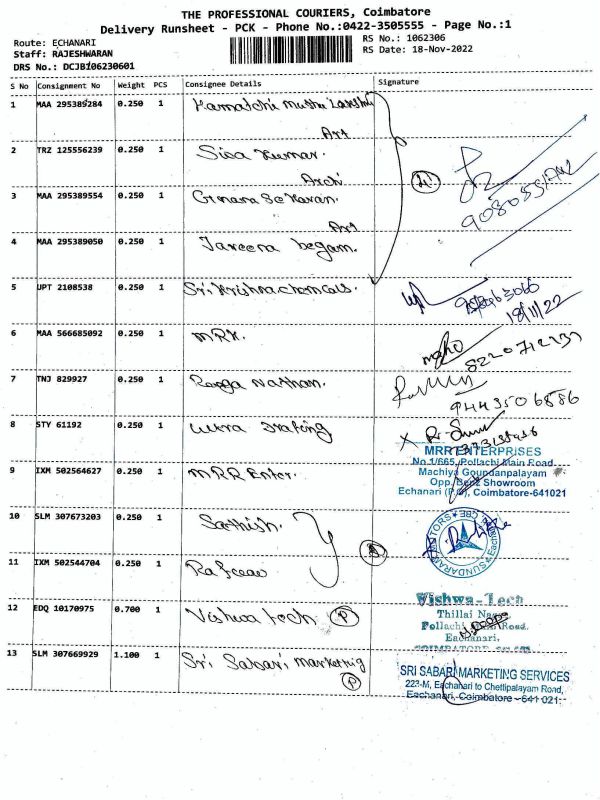 THE PROFESSIONAL COURIERS, Coimbatore
Delivery Runsheet - PCK - Phone No.:0422-3505555 - Page No.:1
RS No.: 1062306
Route: ECHANARI
RS Date: 18-Nov-2022
Staff: RAJESHWARAN
DRS No.: DCJBI06230601
S No Consignment No Weight PCS Consignee Details Signature
1 MAA 295389284 0.250 1
Art
2 TRZ 125556239 0.250 1 Siva Kumar.
Archi
3 MAA 295389554 0.250 1 Gunana Sekaran.
Art
4 MAA 295389050 0.250 1 Jareena begam.
5 UPT 2108538 0.250 1 Sri Krishna chemicals.
18/11/22
6 MAA 566685092 0.250 1 MRK.
7 TNJ 829927 0.250 1 Ranga Nathan.
9443506886
8 STY 61192 0.250 1
9 IXM 502564627 0.250 1 MRR Enter.
MRR ENTERPRISES
No.1/665, Pollachi Main Road
Machiya Goundanpalayam
Opp. Benz Showroom
Echanari (P.O), Coimbatore-641021
10 SLM 307673203 0.250 1 Sathish.
11 IXM 502544704 0.250 1
12 EDQ 10170975 0.700 1 Vishwa tech P
Vishwa-Tech
Thillai Nagar
Pollachi Road.
Eachanari,
13 SLM 307669929 1.100 1 Sri Sabari marketing
P
SRI SABARI MARKETING SERVICES
223-M, Eachanari to Chettipalayam Road,
Eachanari, Coimbatore - 641 021.